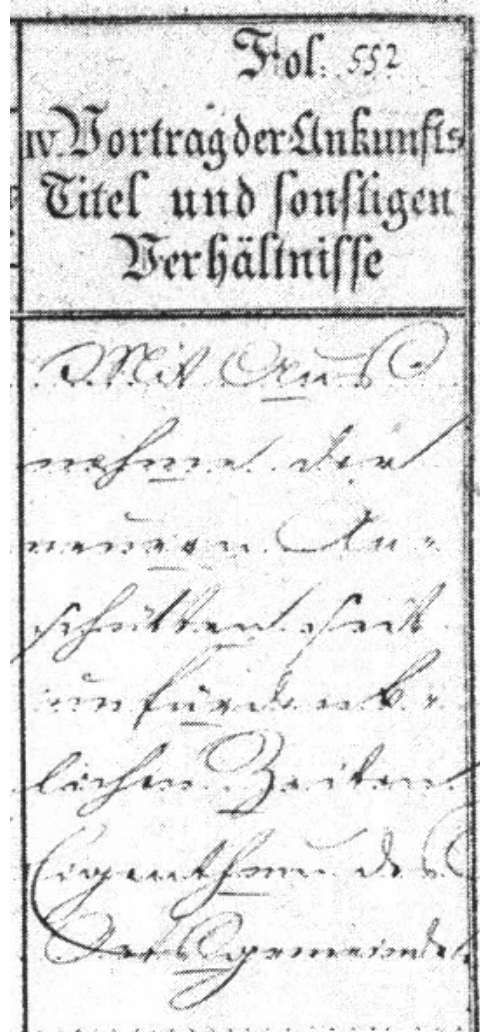 Fol: 552
IV. Vortrag der Ankunfts
Titel und sonstigen
Verhältnisse
Mit Aus
nahme der
neueren An-
schütten seit
unfürdenk-
lichen Zeiten
Eigenthum des
Ortsgemeinde